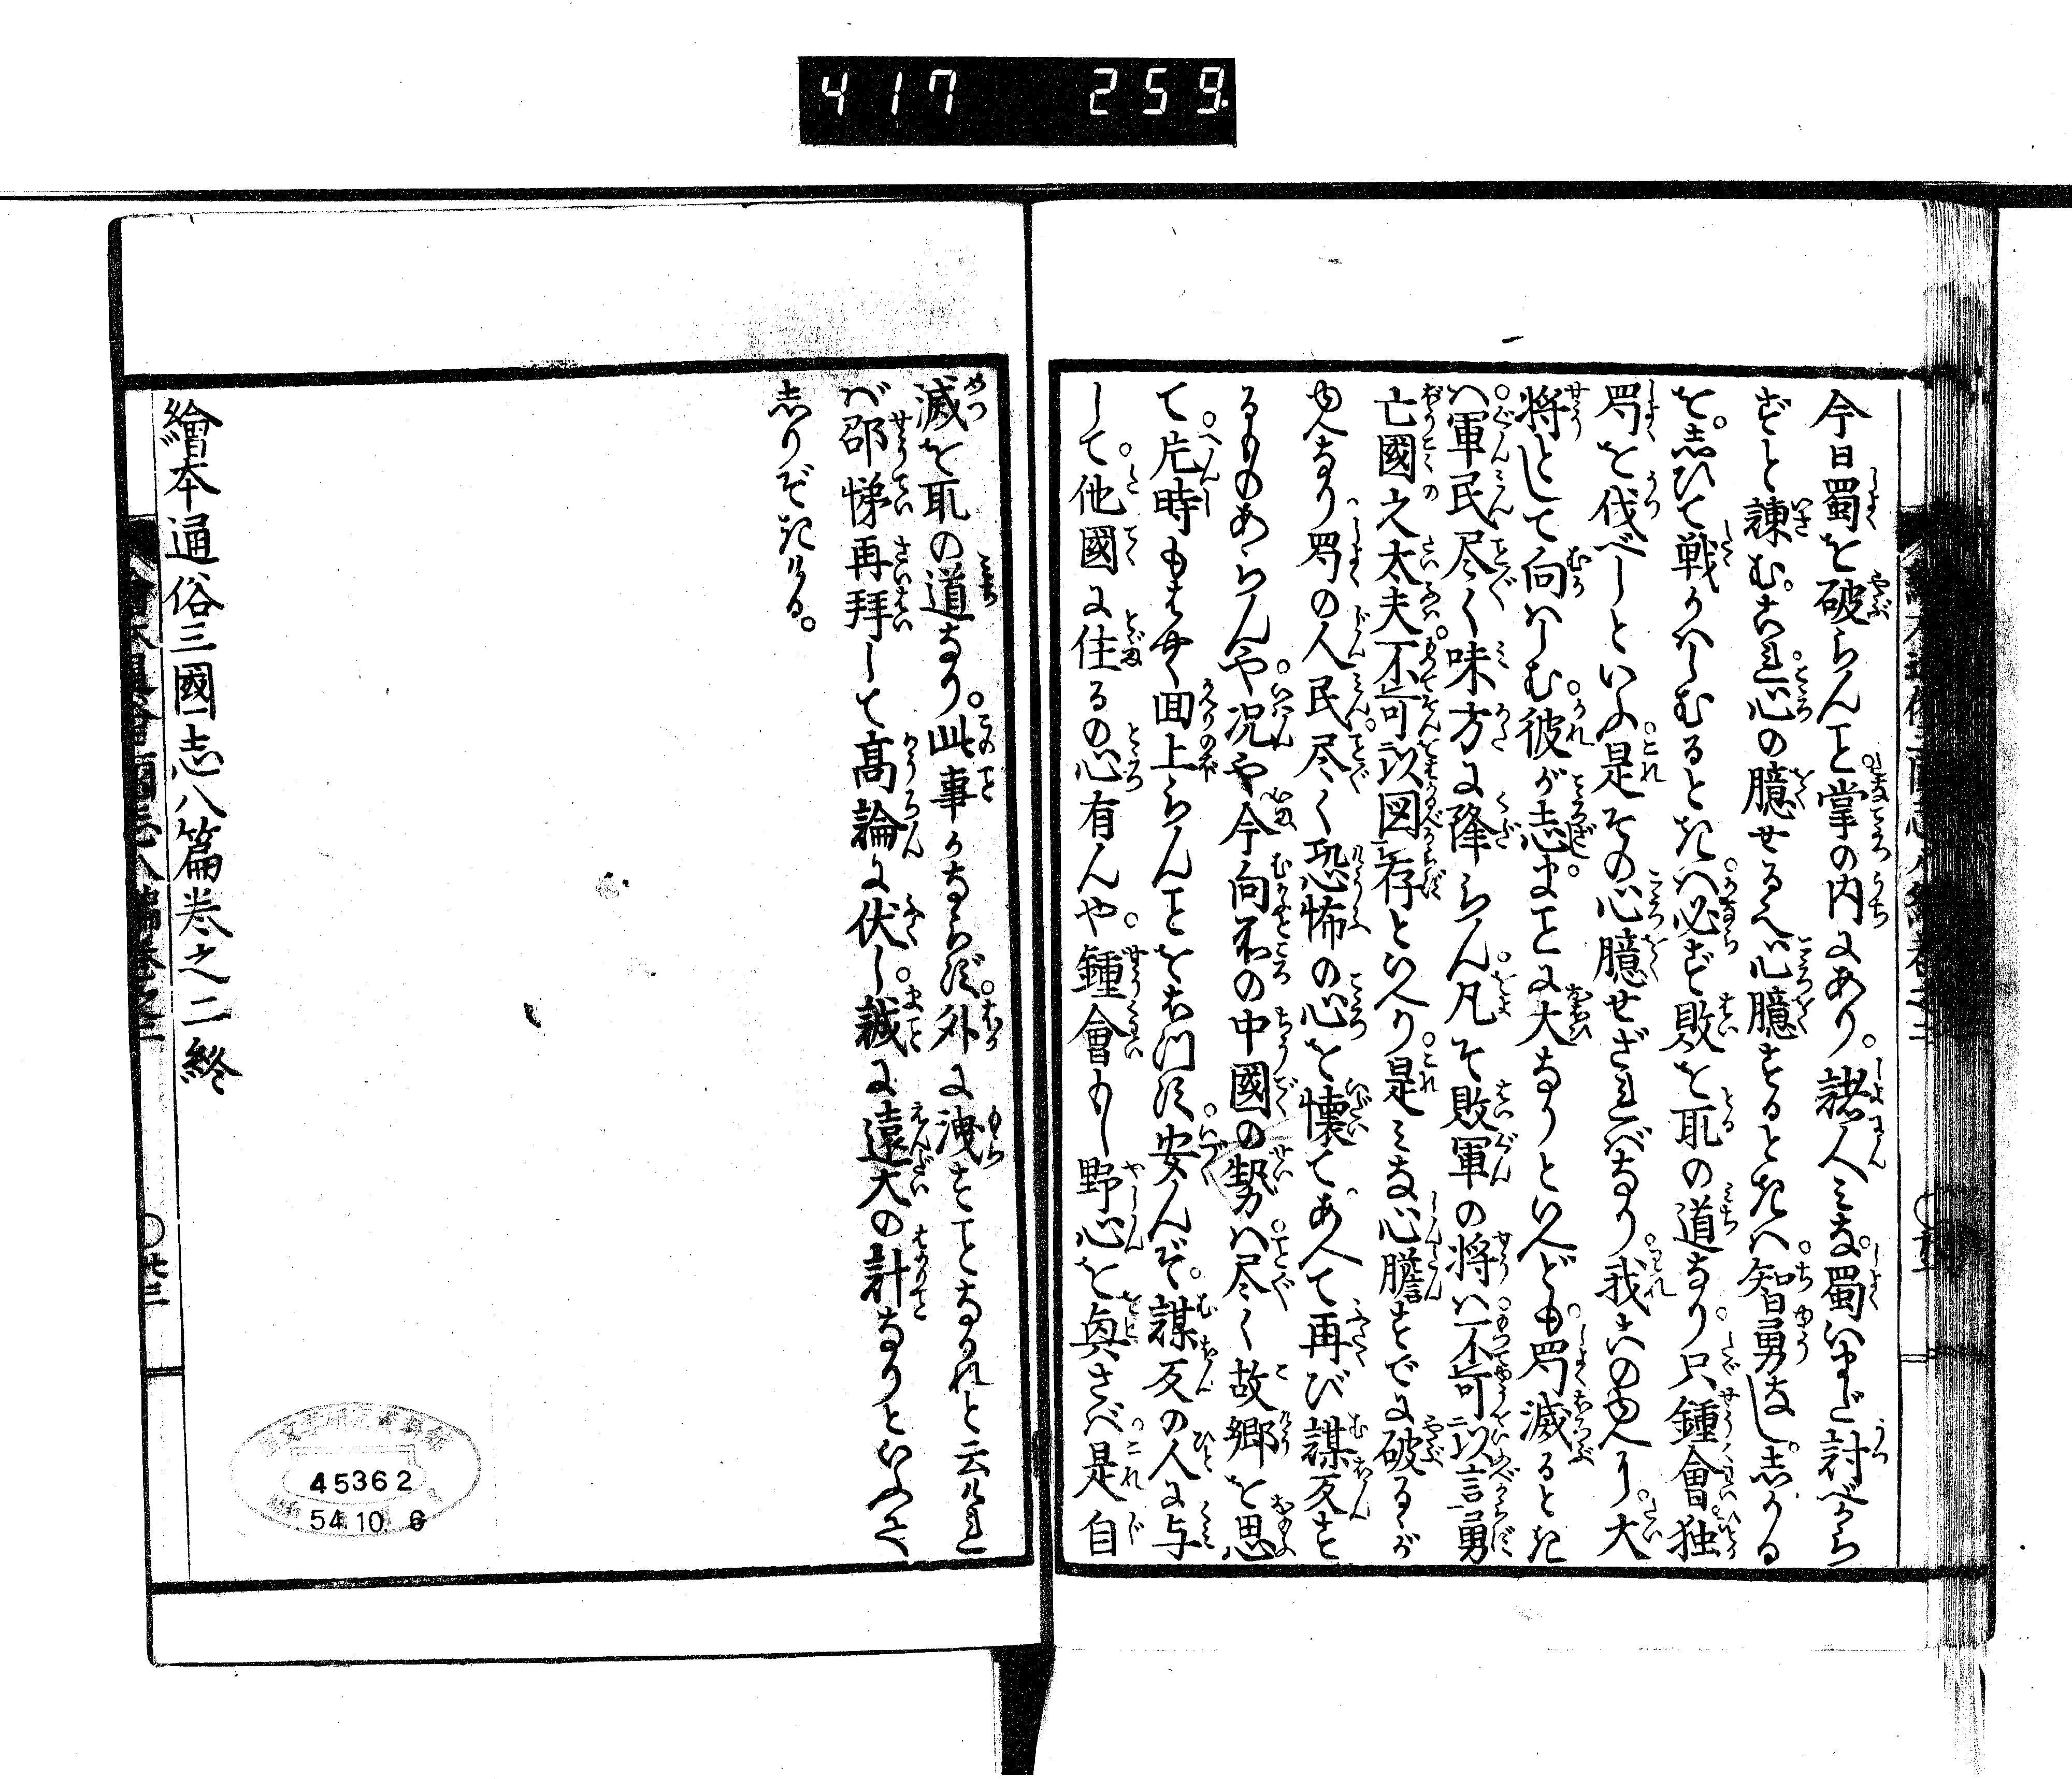 417 259
今日蜀を破らんヿ掌の内にあり。諸人みな。蜀いまだ討べから
ずと諫む。これ心の臆せるゆへ心臆するときハ智勇なし。志かる
を。志ひて戦かハしむるときハ必ず敗を取の道なり。只鍾會独
蜀を伐べしといふ是その心臆せざれバなり。我この由へに。大
将として向ハしむ。彼が志まヿに大なりといへども。蜀滅るとき
ハ。軍民尽く味方に降らん。凡そ敗軍の将ハ不可以言勇
亡國之太夫。不可以図存といへり。是みな心膽すでに破るゝが
由へなり。蜀の人民尽く恐怖の心を懐て。あへて再び謀反す
るものあらんや。况や今向ふ所の中國の勢ハ。尽く故郷を思
て。片時もはやく回上らんヿをおもハず。安んぞ。謀反の人に与
して。他國に住るの心有んや。鍾會もし野心を奥さバ。是自
滅を取の道なり。此事かならず。外に洩すヿなかれと云けれ
バ邵悌再拜して高論に伏し。誠に遠大の計なりといふて
志りぞきける。
繪本通俗三國志八篇巻之二終
〇廿三
45362
54.10.6